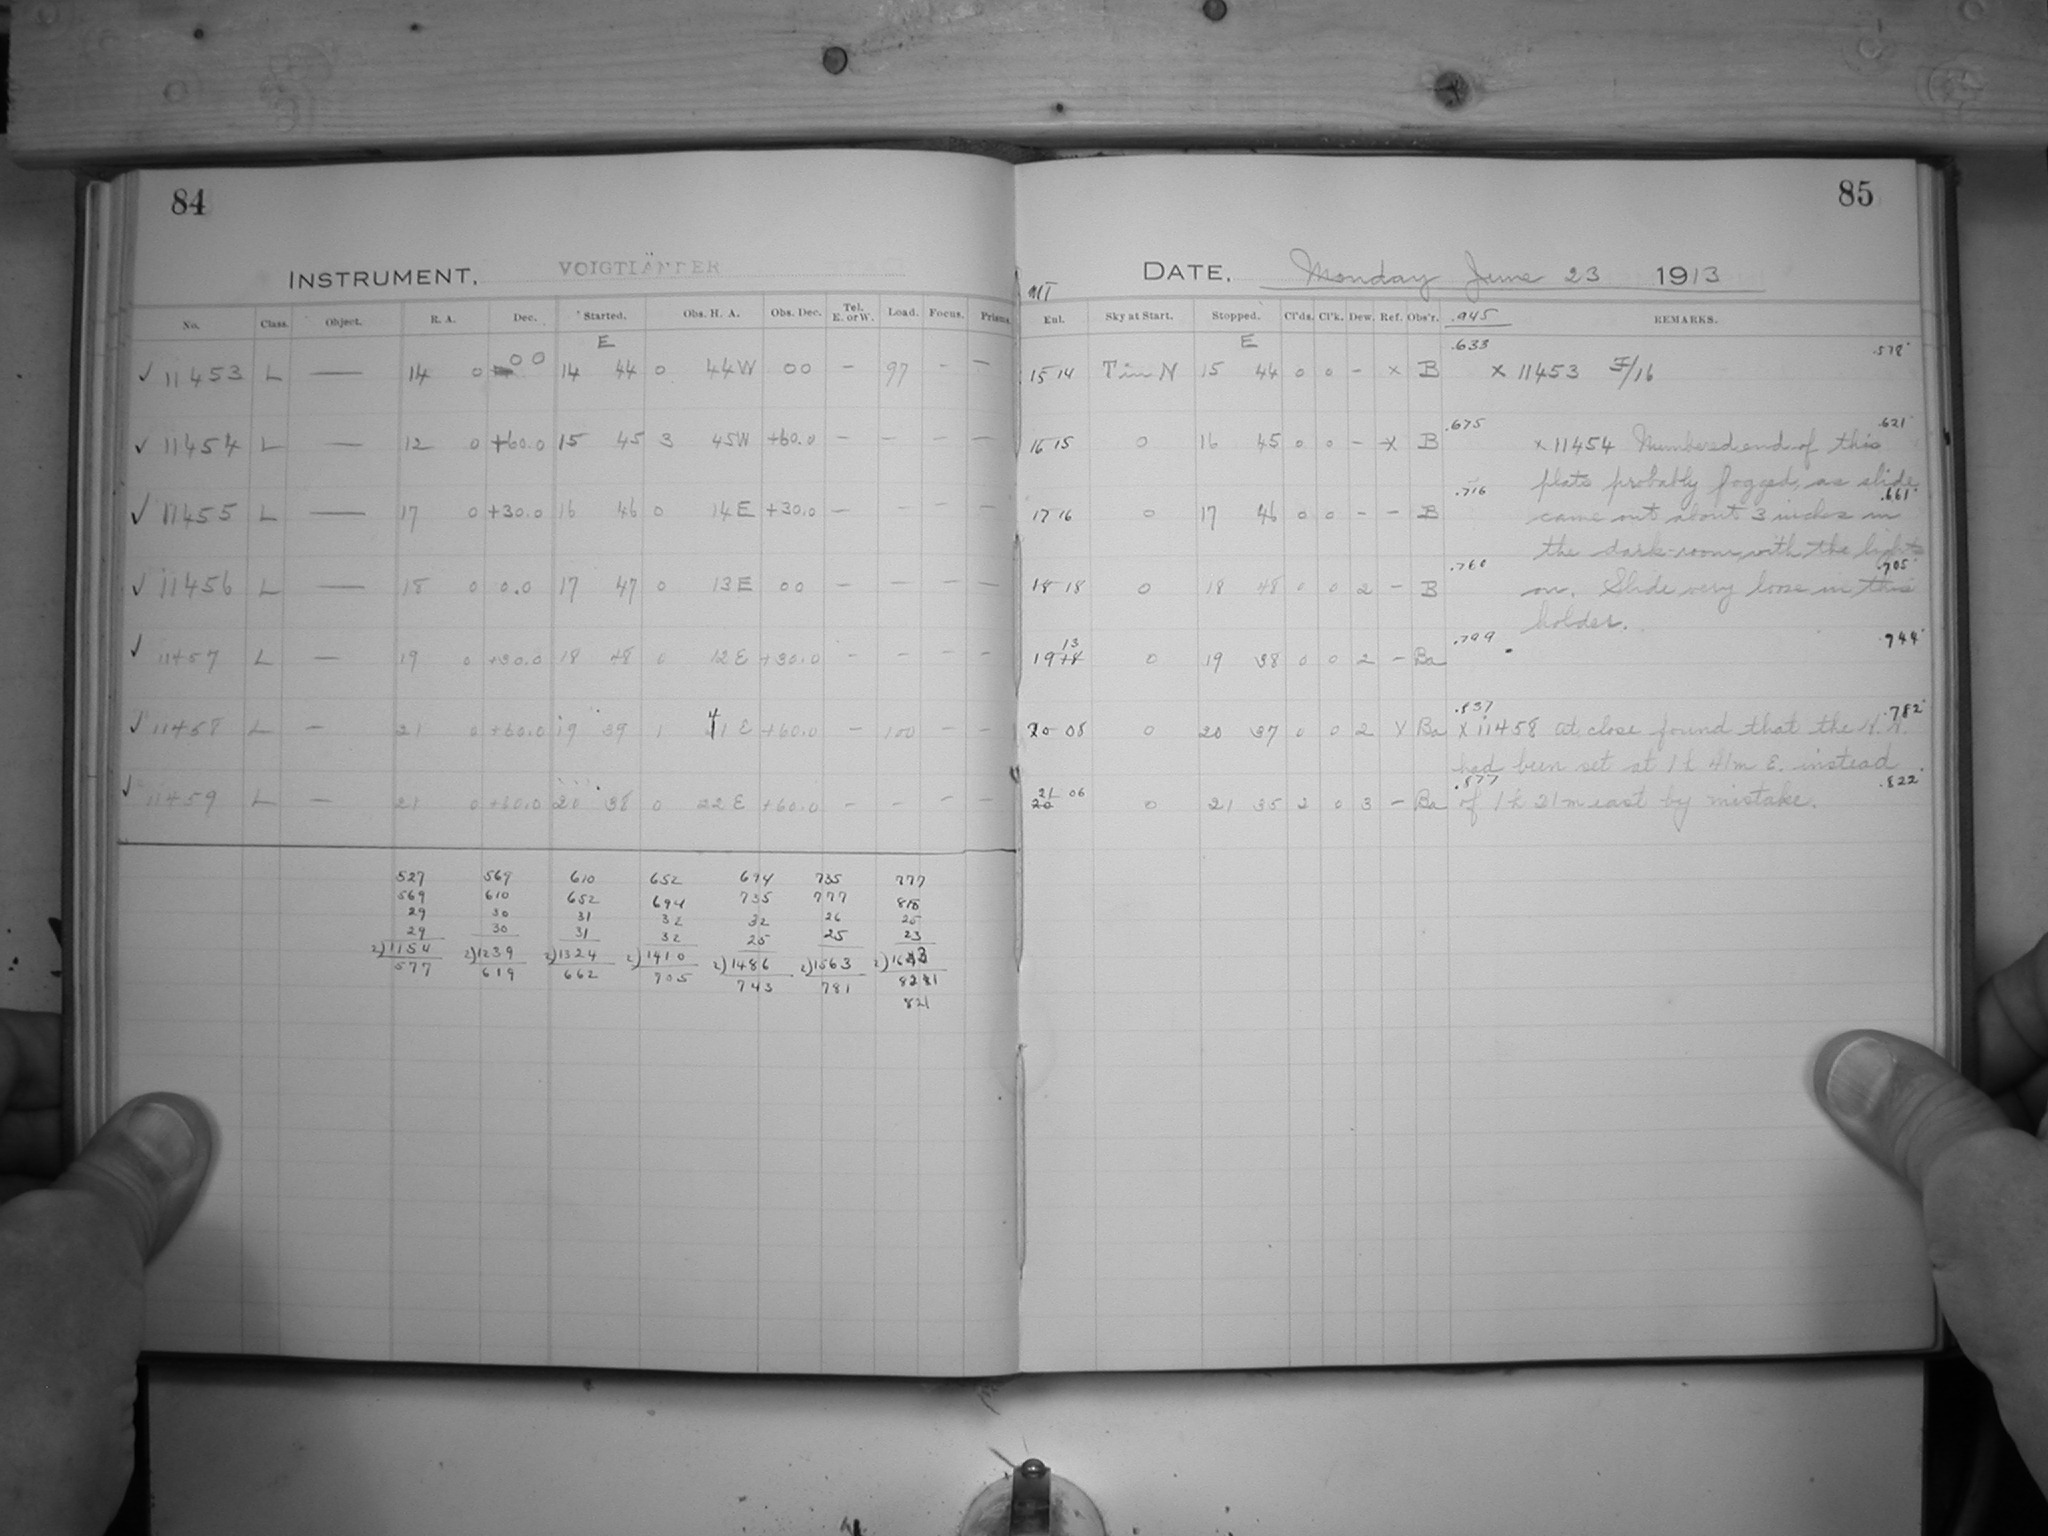 84
INSTRUMENT. VOIGTLÄNDER
No. Class. Object. R. A. Dec. Started. Obs. H. A. Obs. Dec. Tel. E. or W. Load. Focus. Prisms.
E
✓ 11453 L — 14 0 00 14 44 0 44W 00 — 97 — —
✓ 11454 L — 12 0 +60.0 15 45 3 45W +60.0 — — — —
✓ 11455 L — 17 0 +30.0 16 46 0 14E +30.0 — — — —
✓ 11456 L — 18 0 0.0 17 47 0 13E 00 — — — —
✓ 11457 L — 19 0 +30.0 18 48 0 12E +30.0 — — — —
✓ 11458 L — 21 0 +60.0 19 39 1 41E +60.0 — 100 — —
✓ 11459 L — 21 0 +60.0 20 38 0 22E +60.0 — — — —
527 569 610 652 694 735 777
569 610 652 694 735 777 818
29 30 31 32 32 26 25
29 30 31 32 25 25 23
2)1154 2)1239 2)1324 2)1410 2)1486 2)1563 2)1643
577 619 662 705 743 781 821
821
85
DATE. Monday June 23 1913
MT
Enl. Sky at Start. Stopped. Cl'ds. Cl'k. Dew. Ref. Obs'r. .945 REMARKS.
E
.633 .578
15 14 Tin N 15 44 0 0 — x B x 11453 F/16
.675 .621
16 15 0 16 45 0 0 — x B x 11454 Numbered end of this
plate probably fogged, as slide
.716 .661
17 16 0 17 46 0 0 — — B came out about 3 inches in
the dark-room with the lights
.760 .705
18 18 0 18 48 0 0 2 — B on. Slide very loose in this
holder.
.799 .744
13
19 18 0 19 38 0 0 2 — Ba
.837 .782
20 08 0 20 37 0 0 2 X Ba x 11458 at close found that the H.A.
had been set at 1h 41m E. instead
.877 .822
21 06
20 0 21 35 2 0 3 — Ba of 1h 21m east by mistake.